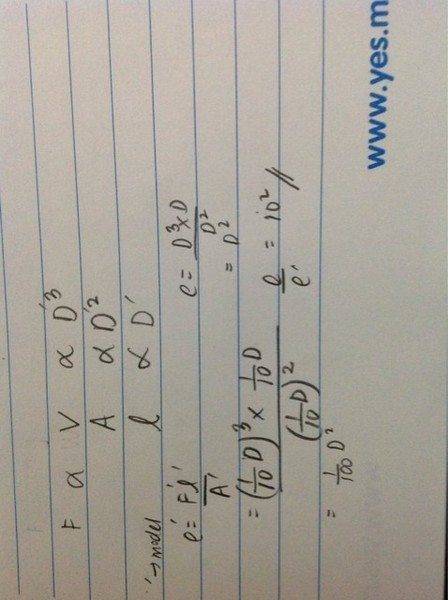 F ∝ V ∝ D'³
A ∝ D'²
l ∝ D'
' → model
e' = F'l' / A'
= (1/10 D)³ × 1/10 D / (1/10 D)²
= 1/100 D²
e = D³ × D / D²
= D²
e / e' = 10² //
www.yes.m